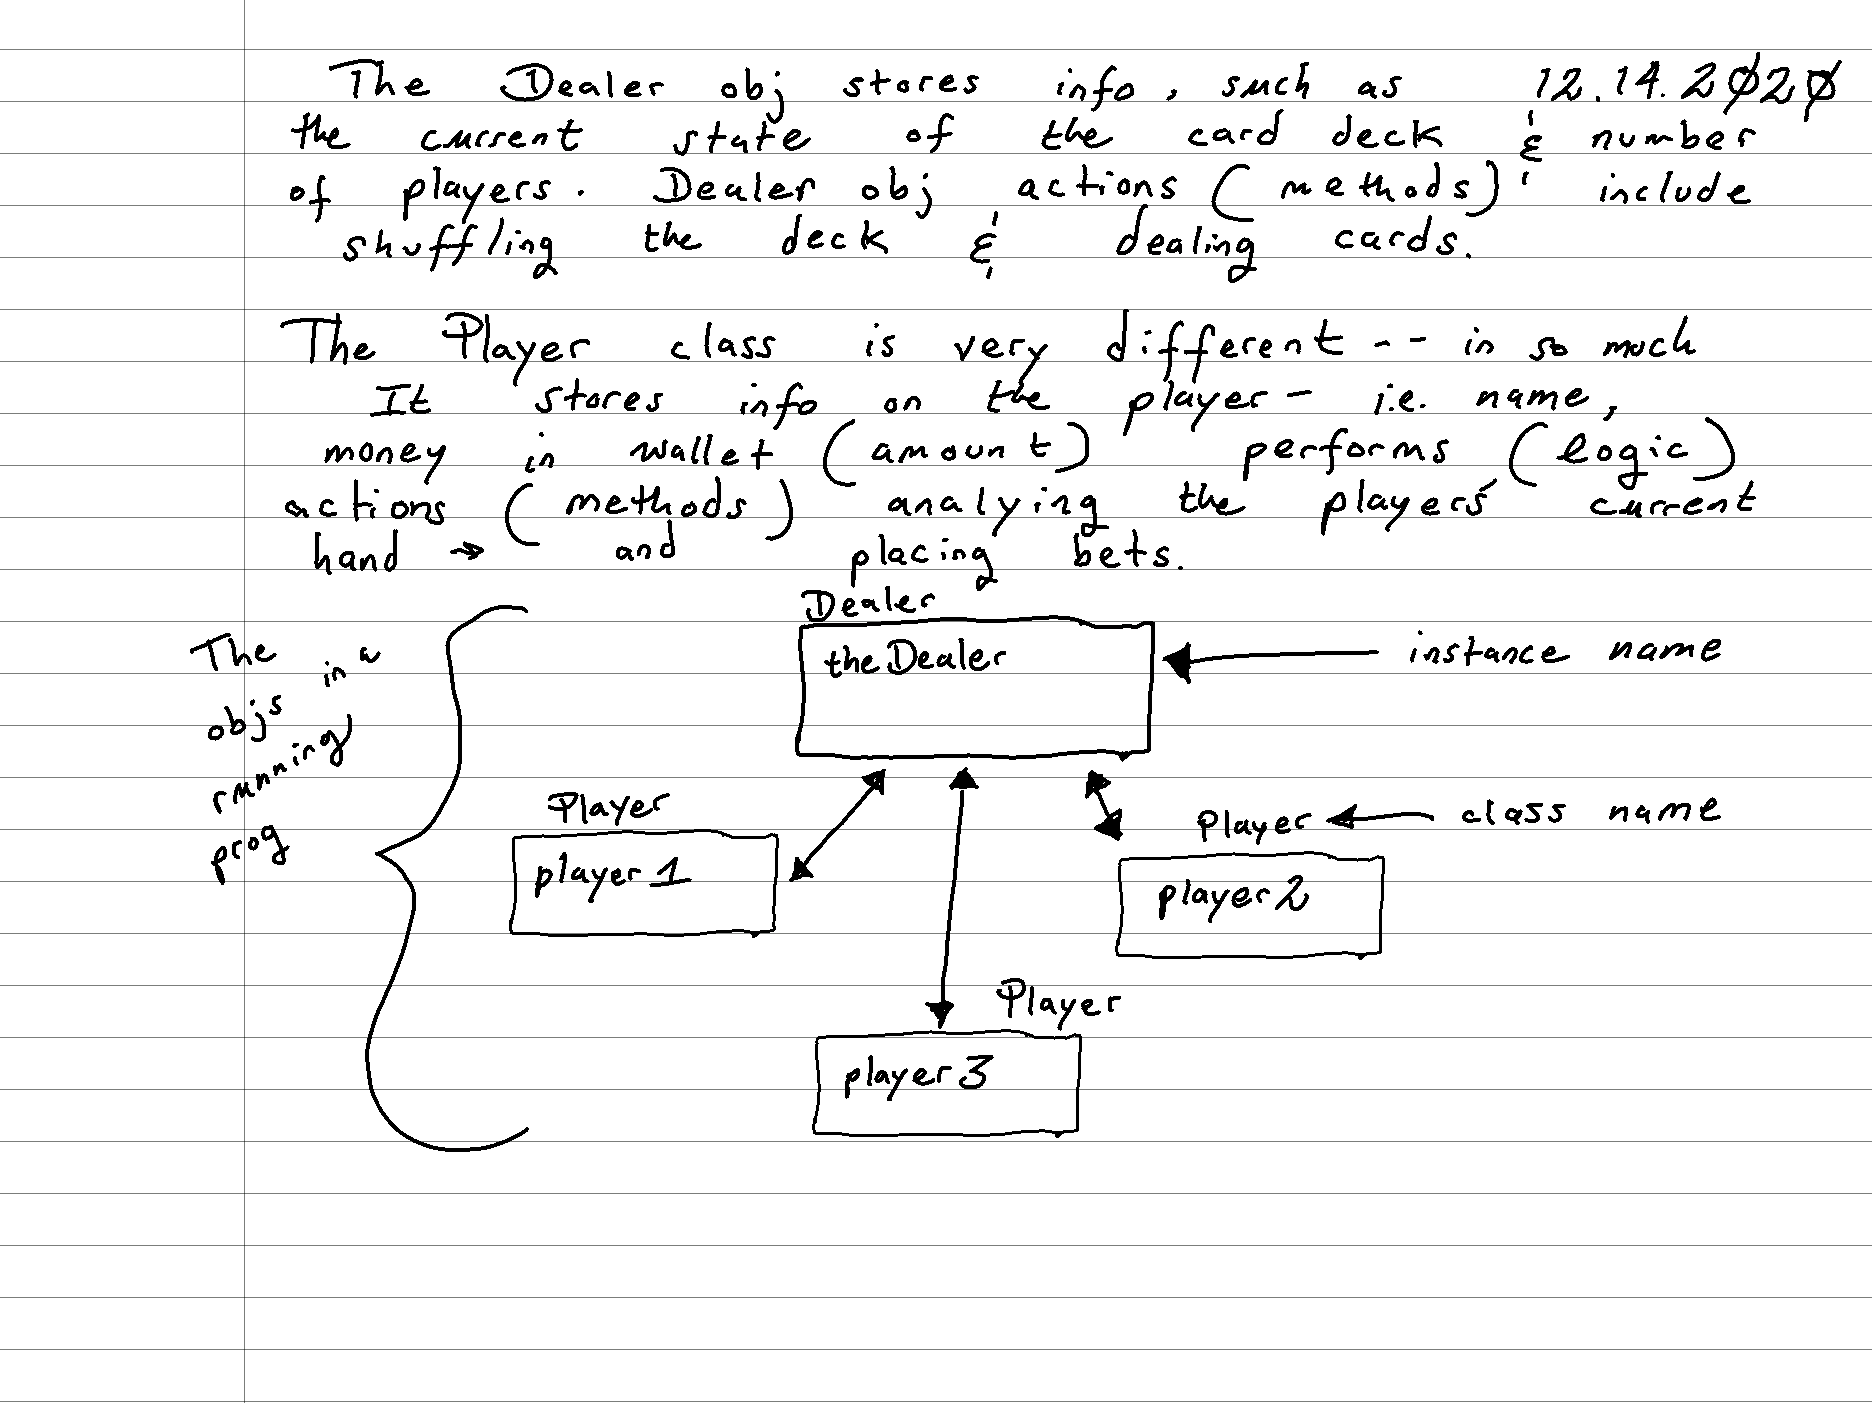 The Dealer obj stores info, such as 12.14.2020
the current state of the card deck & number
of players. Dealer obj actions (methods) include
shuffling the deck & dealing cards.
The Player class is very different -- in so much
It stores info on the player - i.e. name,
money in wallet (amount) performs (logic)
actions (methods) analying the players' current
hand → and placing bets.
Dealer
theDealer
instance name
The
objs in a
running
prog
Player
player 1
Player
class name
player 2
Player
player 3